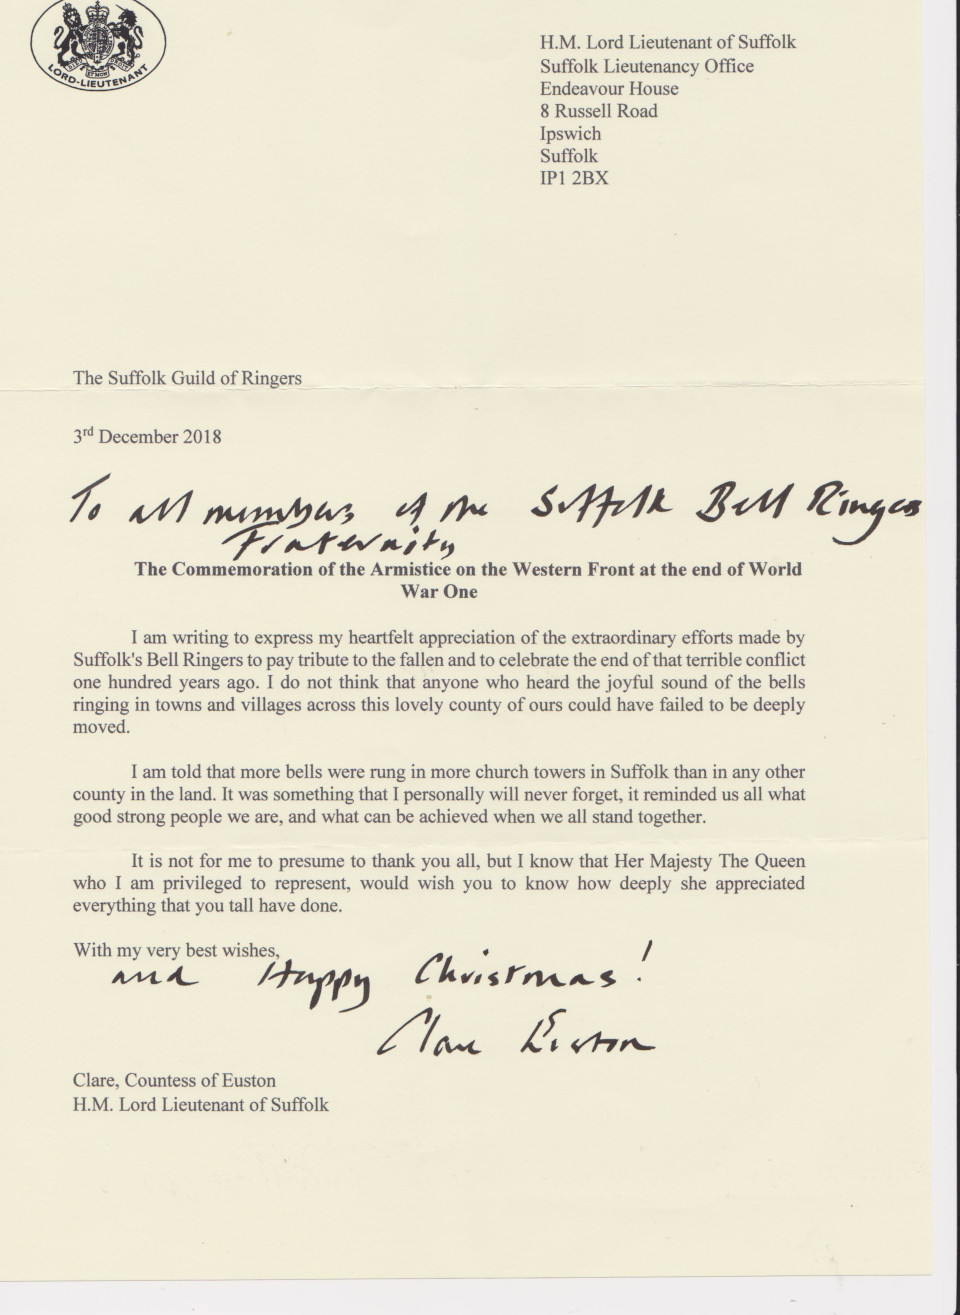 LORD-LIEUTENANT
H.M. Lord Lieutenant of Suffolk
Suffolk Lieutenancy Office
Endeavour House
8 Russell Road
Ipswich
Suffolk
IP1 2BX
The Suffolk Guild of Ringers
3rd December 2018
To all members of the Suffolk Bell Ringers
Fraternity
The Commemoration of the Armistice on the Western Front at the end of World
War One
I am writing to express my heartfelt appreciation of the extraordinary efforts made by
Suffolk's Bell Ringers to pay tribute to the fallen and to celebrate the end of that terrible conflict
one hundred years ago. I do not think that anyone who heard the joyful sound of the bells
ringing in towns and villages across this lovely county of ours could have failed to be deeply
moved.
I am told that more bells were rung in more church towers in Suffolk than in any other
county in the land. It was something that I personally will never forget, it reminded us all what
good strong people we are, and what can be achieved when we all stand together.
It is not for me to presume to thank you all, but I know that Her Majesty The Queen
who I am privileged to represent, would wish you to know how deeply she appreciated
everything that you tall have done.
With my very best wishes,
and Happy Christmas!
Clare Euston
Clare, Countess of Euston
H.M. Lord Lieutenant of Suffolk